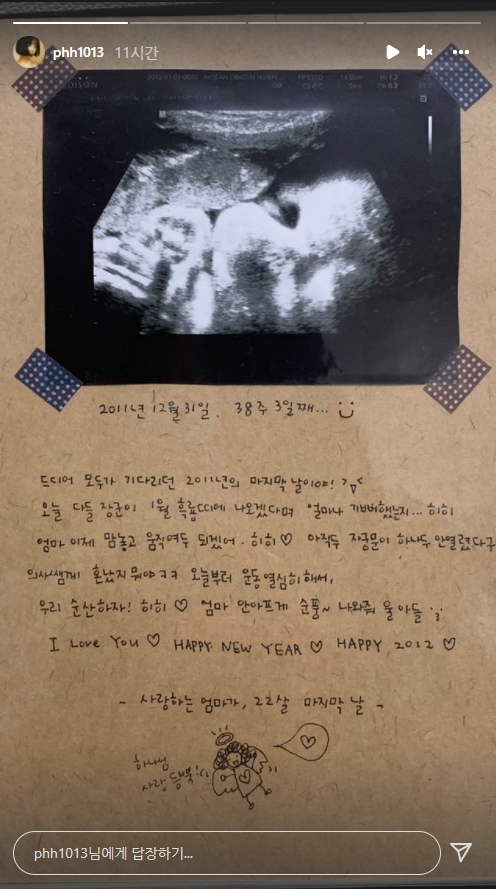 phh1013 11시간
EDISON
2011년 12월 31일. 38주 3일째...
드디어 모두가 기다리던 2011년의 마지막 날이야!
오늘 다들 장군이 1월 흑룡띠에 나오겠다며 얼마나 기뻐했는지... 히히
엄마 이제 맘놓고 움직여두 되겠어. 히히♡ 아직두 자궁문이 하나두 안열렸다구
의사쌤께 혼났지 뭐야ㅋㅋ 오늘부터 운동 열심히해써,
우리 순산하자! 히히 ♡ 엄마 안아프게 순풍~ 나와줘 울아들 :)
I Love You ♡ HAPPY NEW YEAR ♡ HAPPY 2012 ♡
- 사랑하는 엄마가, 22살 마지막 날 -
하나님
사랑 듬뿍!
phh1013님에게 답장하기...